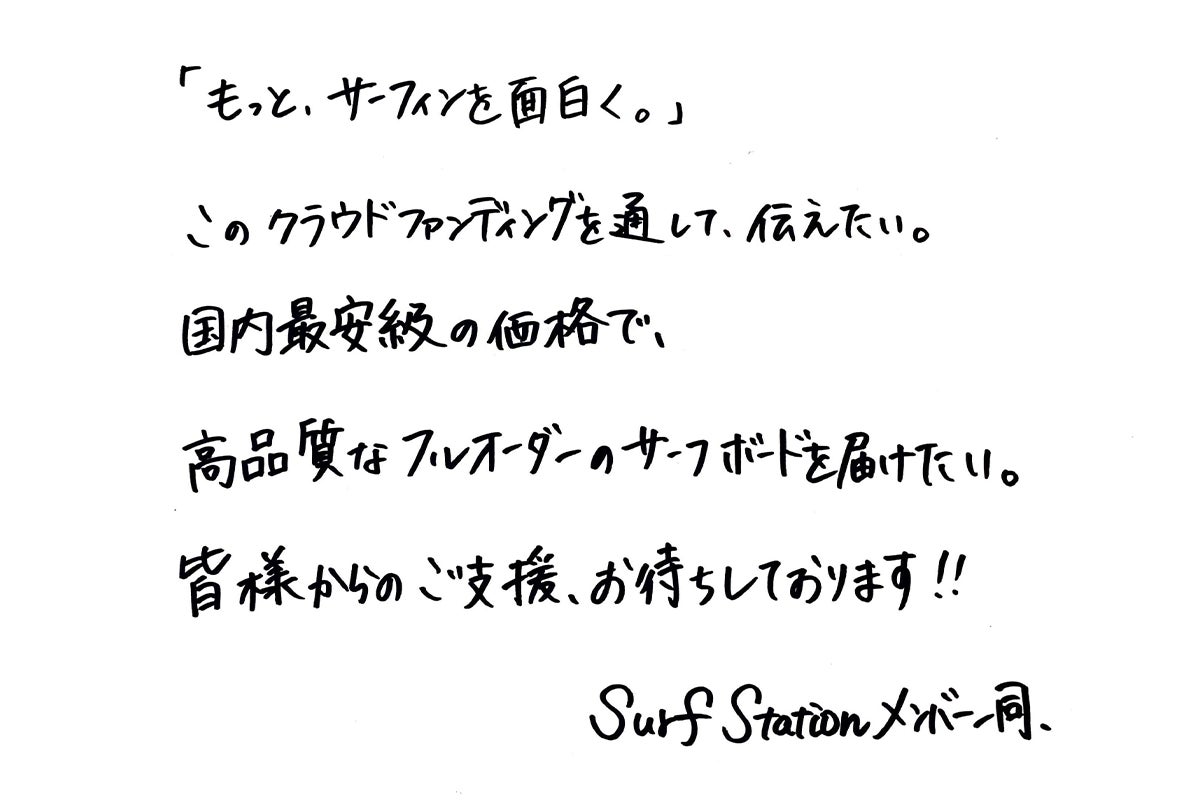 「もっと、サーフィンを面白く。」
このクラウドファンディングを通して、伝えたい。
国内最安級の価格で、
高品質なフルオーダーのサーフボードを届けたい。
皆様からのご支援、お待ちしております!!
Surf Stationメンバー一同、